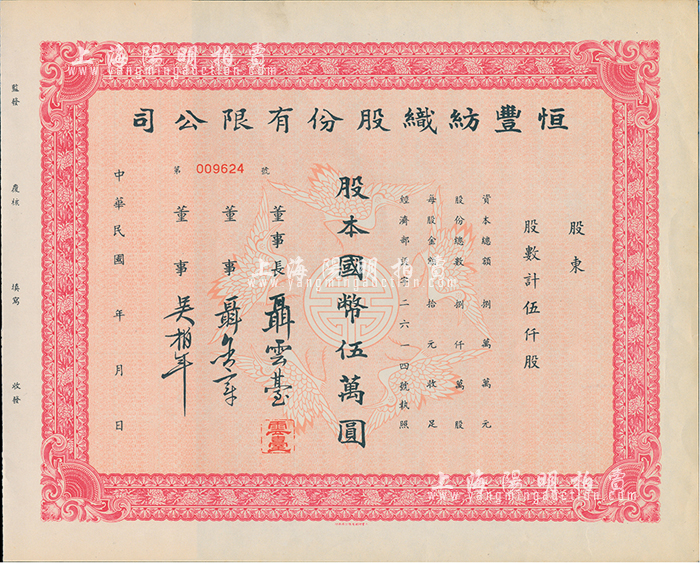 上海陽明拍賣
www.yangmingauction.com
恒豐紡織股份有限公司
股東
股數計伍仟股
資本總額捌萬萬元
股份總數捌仟萬股
每股金額拾元收足
經濟部 二六一四號執照
股本國幣伍萬圓
第 009624 號
董事長 聶雲臺
雲臺
董事 聶
董事 吳柏年
中華民國 年 月 日
監發
覆核
填寫
收發
上海陽明拍賣
www.yangmingauction.com
上海陽明拍賣
www.yangmingauction.com